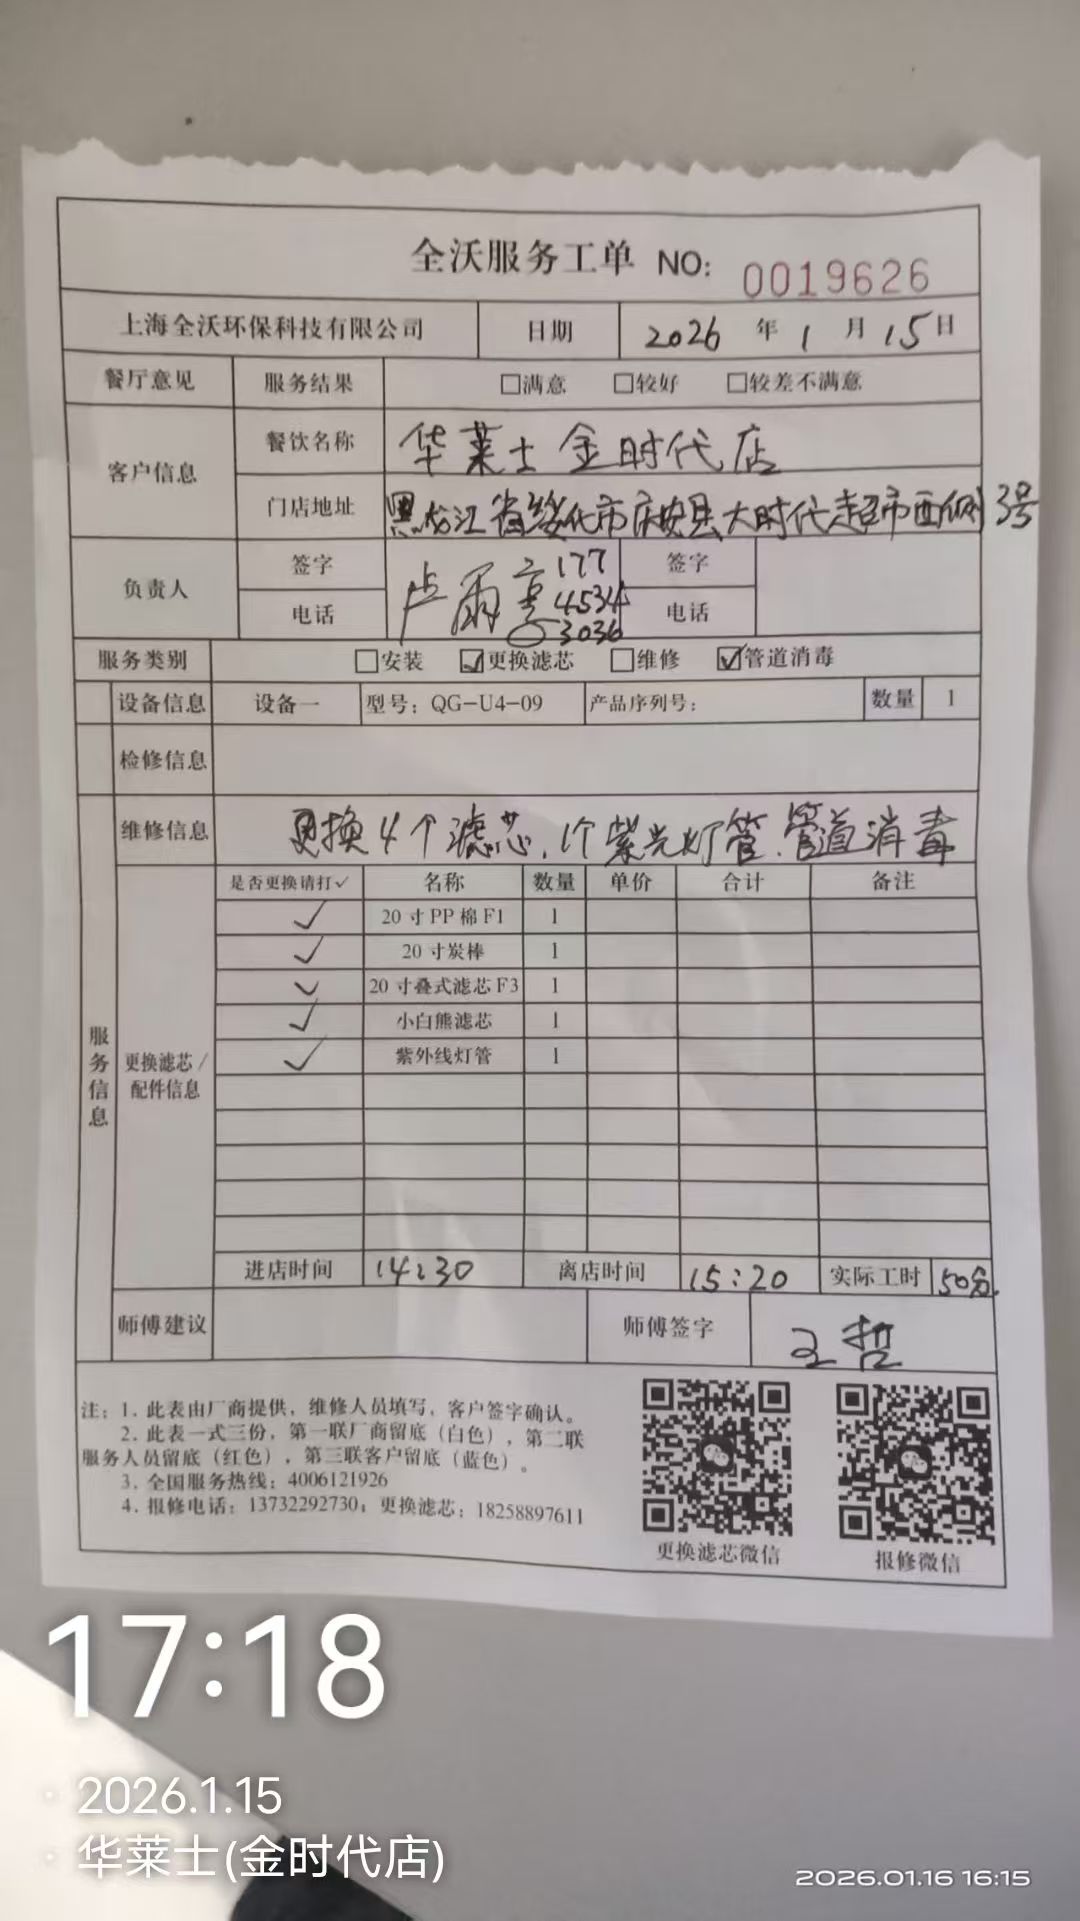 全沃服务工单 NO: 0019626
上海全沃环保科技有限公司 日期 2026 年 1 月 15 日
餐厅意见 服务结果 □满意 □较好 □较差不满意
客户信息 餐饮名称 华莱士金时代店
门店地址 黑龙江省绥化市庆安县大时代超市西侧3号
负责人 签字 卢雨亭 177 签字
电话 4534 电话
3036
服务类别 □安装 ☑更换滤芯 □维修 ☑管道消毒
设备信息 设备一 型号：QG-U4-09 产品序列号： 数量 1
检修信息
维修信息 更换4个滤芯、1个紫光灯管、管道消毒
服务信息 更换滤芯/配件信息
是否更换请打✓ 名称 数量 单价 合计 备注
✓ 20寸PP棉F1 1
✓ 20寸炭棒 1
✓ 20寸叠式滤芯F3 1
✓ 小白熊滤芯 1
✓ 紫外线灯管 1
进店时间 14:30 离店时间 15:20 实际工时 50分
师傅建议 师傅签字 王哲
注：1. 此表由厂商提供，维修人员填写，客户签字确认。
2. 此表一式三份，第一联厂商留底（白色），第二联
服务人员留底（红色），第三联客户留底（蓝色）。
3. 全国服务热线：4006121926
4. 报修电话：13732292730；更换滤芯：18258897611
更换滤芯微信 报修微信
17:18
2026.1.15
华莱士(金时代店)
2026.01.16 16:15